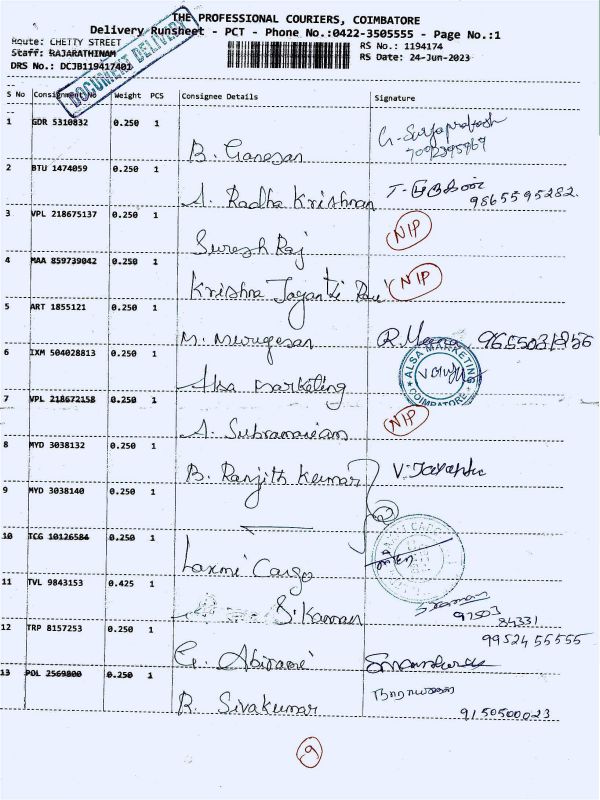 THE PROFESSIONAL COURIERS, COIMBATORE
Delivery Runsheet - PCT - Phone No.:0422-3505555 - Page No.:1
Route: CHETTY STREET
RS No.: 1194174
Staff: RAJARATHINAM
RS Date: 24-Jun-2023
DRS No.: DCJB119417401
DOCUMENT DELIVERY
S No Consignment No Weight PCS Consignee Details Signature
1 GDR 5310832 0.250 1
B. Ganesan
2 BTU 1474059 0.250 1
A. Radha Krishnan 9865595282
3 VPL 218675137 0.250 1 NIP
Suresh Raj
4 MAA 859739042 0.250 1 NIP
Krishna Jayanti
5 ART 1855121 0.250 1
M. Murugesan R. Meena 9655031856
6 IXM 504028813 0.250 1
ALSA MARKETING
COIMBATORE
Alsa Marketing
7 VPL 218672158 0.250 1 NIP
A. Subramaniam
8 MYD 3038132 0.250 1
B. Ranjith Kumar
9 MYD 3038140 0.250 1
2
10 TCG 10126584 0.250 1
Laxmi Cargo
11 TVL 9843153 0.425 1
S. Kannan 97503
84331
12 TRP 8157253 0.250 1 9952455555
G. Abirami
13 POL 2569800 0.250 1
R. Sivakumar 9150500023
9